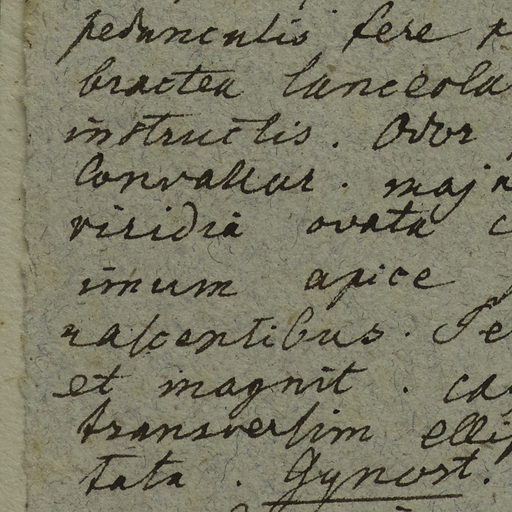 pedunculis fere
bractea lanceola
instructis. Odor
Convallar. maja
viridia ovata c
imum apice
nascentibus. Te
et magnit. ca
transversim ellip
tata. Gynost.